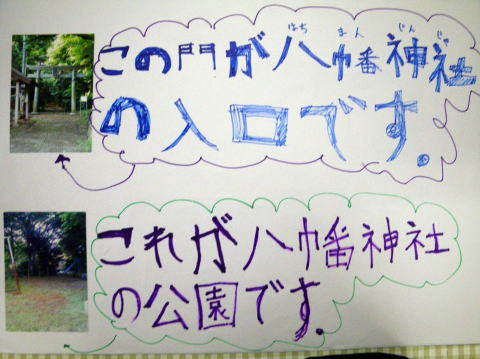 はち まん じん じゃ
この門が八幡神社
の入口です。
これが八幡神社
の公園です。